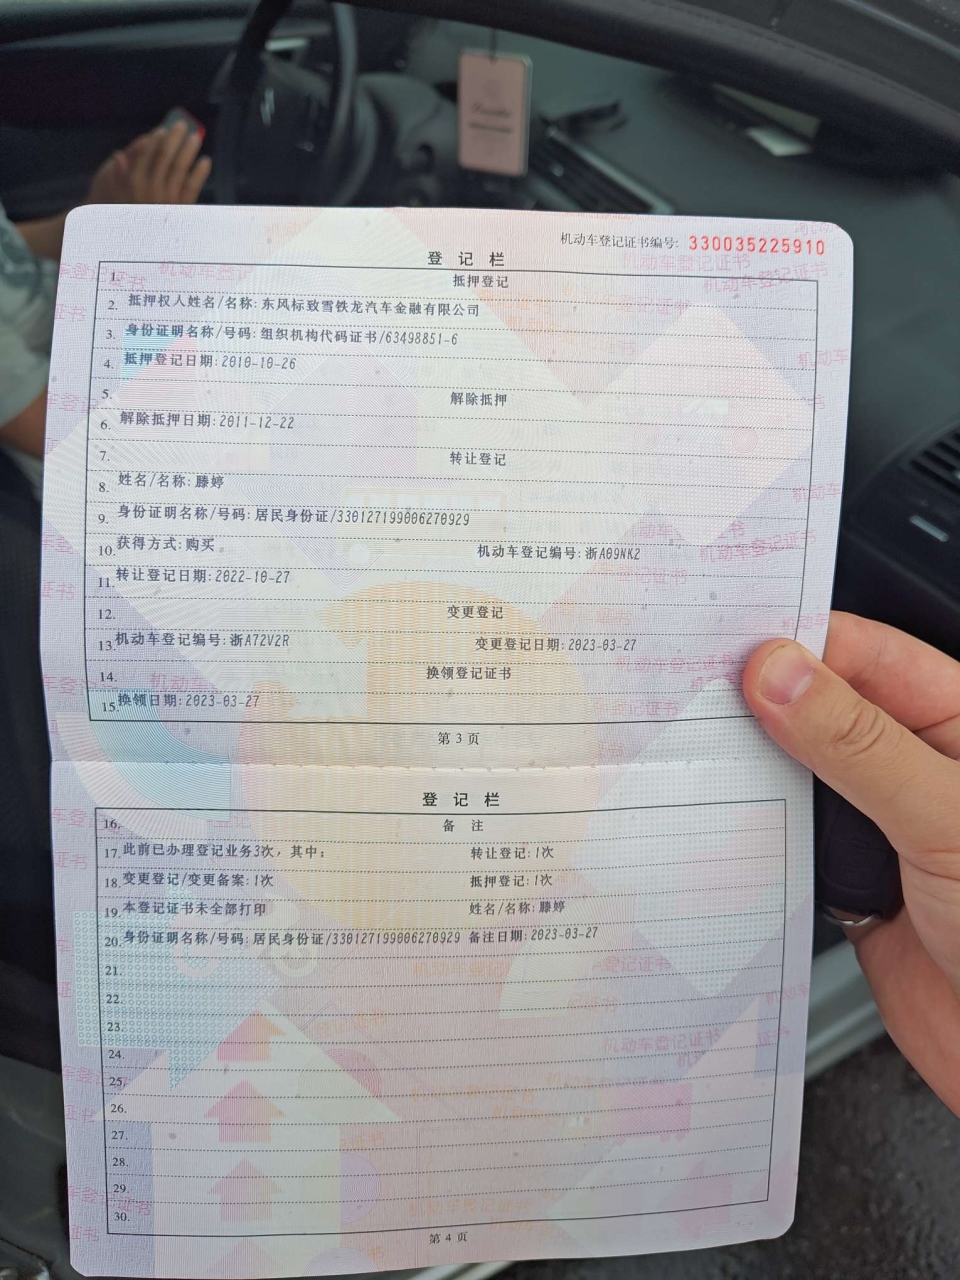 机动车登记证书编号: 330035225910
登 记 栏
1. 抵押登记
2. 抵押权人姓名/名称: 东风标致雪铁龙汽车金融有限公司
3. 身份证明名称/号码: 组织机构代码证书/63498851-6
4. 抵押登记日期: 2010-10-26
5. 解除抵押
6. 解除抵押日期: 2011-12-22
7. 转让登记
8. 姓名/名称: 滕婷
9. 身份证明名称/号码: 居民身份证/330127199006270929
10. 获得方式: 购买 机动车登记编号: 浙A09NK2
11. 转让登记日期: 2022-10-27
12. 变更登记
13. 机动车登记编号: 浙A72V2R 变更登记日期: 2023-03-27
14. 换领登记证书
15. 换领日期: 2023-03-27
第 3 页
登 记 栏
16. 备 注
17. 此前已办理登记业务3次，其中: 转让登记: 1次
18. 变更登记/变更备案: 1次 抵押登记: 1次
19. 本登记证书未全部打印 姓名/名称: 滕婷
20. 身份证明名称/号码: 居民身份证/330127199006270929 备注日期: 2023-03-27
21.
22.
23.
24.
25.
26.
27.
28.
29.
30.
第 4 页